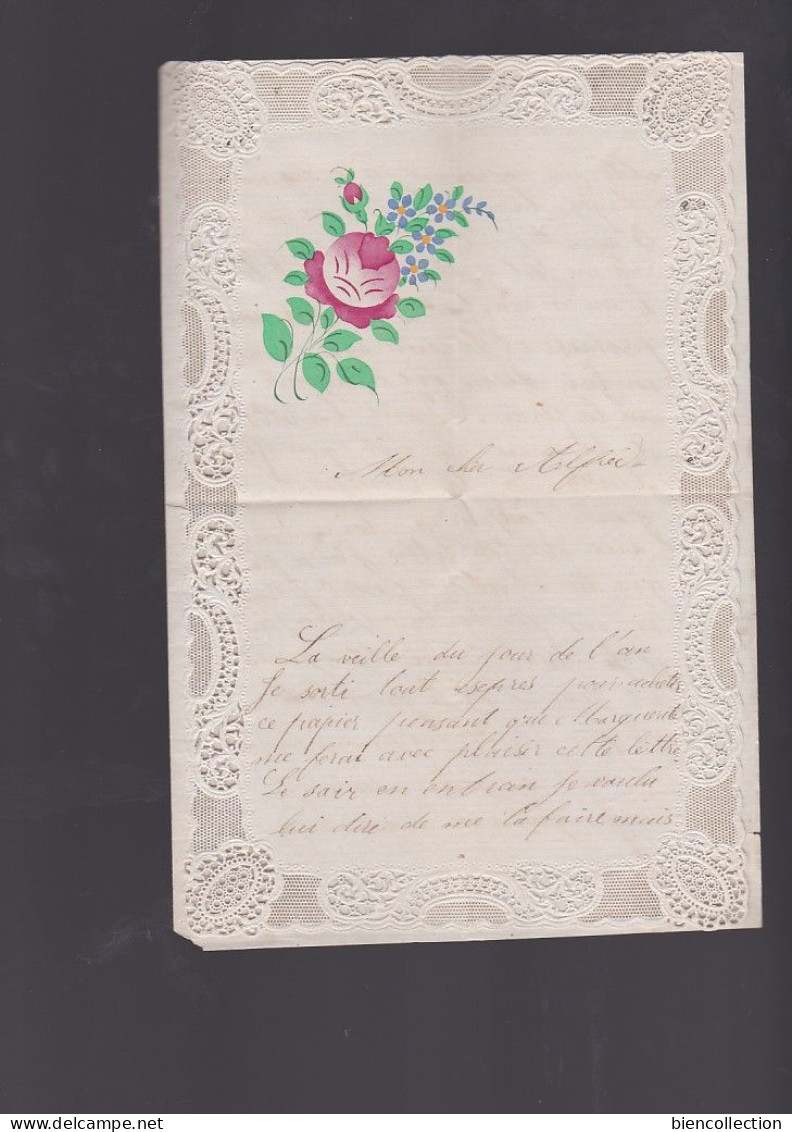 Mon cher Alfred
La veille du jour de l'an
Je sorti tout exepres pour acheter
ce papier pensant que Marguerite
me ferai avec plaisir cette lettre
Le soir en entran Je voulu
lui dire de me la faire mais
delcampe.net
biencollection